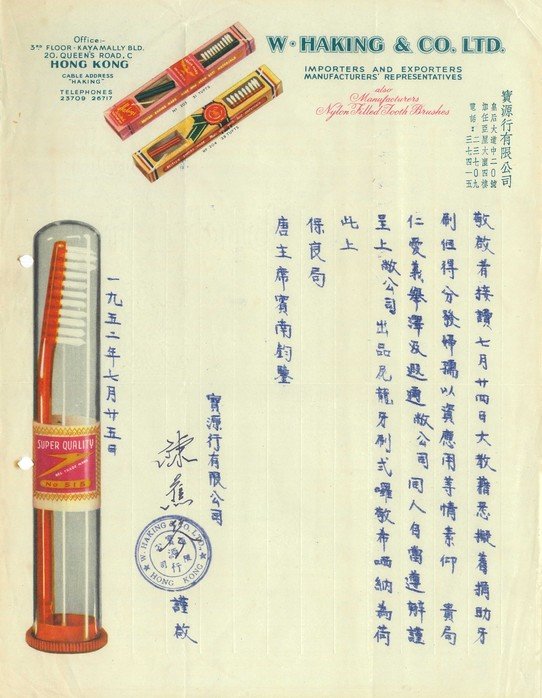 Office:-
3RD FLOOR-KAYAMALLY BLD.
20, QUEEN'S ROAD, C
HONG KONG
CABLE ADDRESS
"HAKING"
TELEPHONES
23709 26717
W·HAKING & CO. LTD.
IMPORTERS AND EXPORTERS
MANUFACTURERS' REPRESENTATIVES
also
Manufacturers
Nylon Filled Tooth Brushes
寶源行有限公司
皇后大道中二〇號
加任亞厘大廈四樓
電話：二三七〇九
三七四一五
敬啟者接讀七月廿四日大教藉悉擬着捐助牙
刷俾得分發婦孺以資應用等情素仰 貴局
仁愛義舉澤及遐邇敝公司同人自當遵辦謹
呈上敝公司 出品尼龍牙刷式囉敬希哂納為荷
此上
保良局
唐主席賓南鈞鑒
寶源行有限公司
謹啟
一九五二年七月廿五日
W. HAKING & CO., LTD.
HONG KONG
寶源行
有限公司
SUPER QUALITY
REG. TRADE MARK
No 515